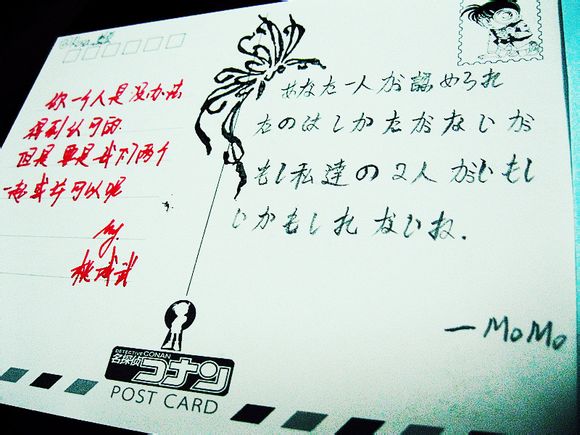 你一个人是没办法
得到认可的.
但是要是我们两个
一起或许可以呢
by.
桃城武
あなた一人が認められ
たのはしかたがないが
もし私達の2人がいもし
じかもしれないね.
—MoMo
DETECTIVE CONAN
名探偵
コナン
POST CARD